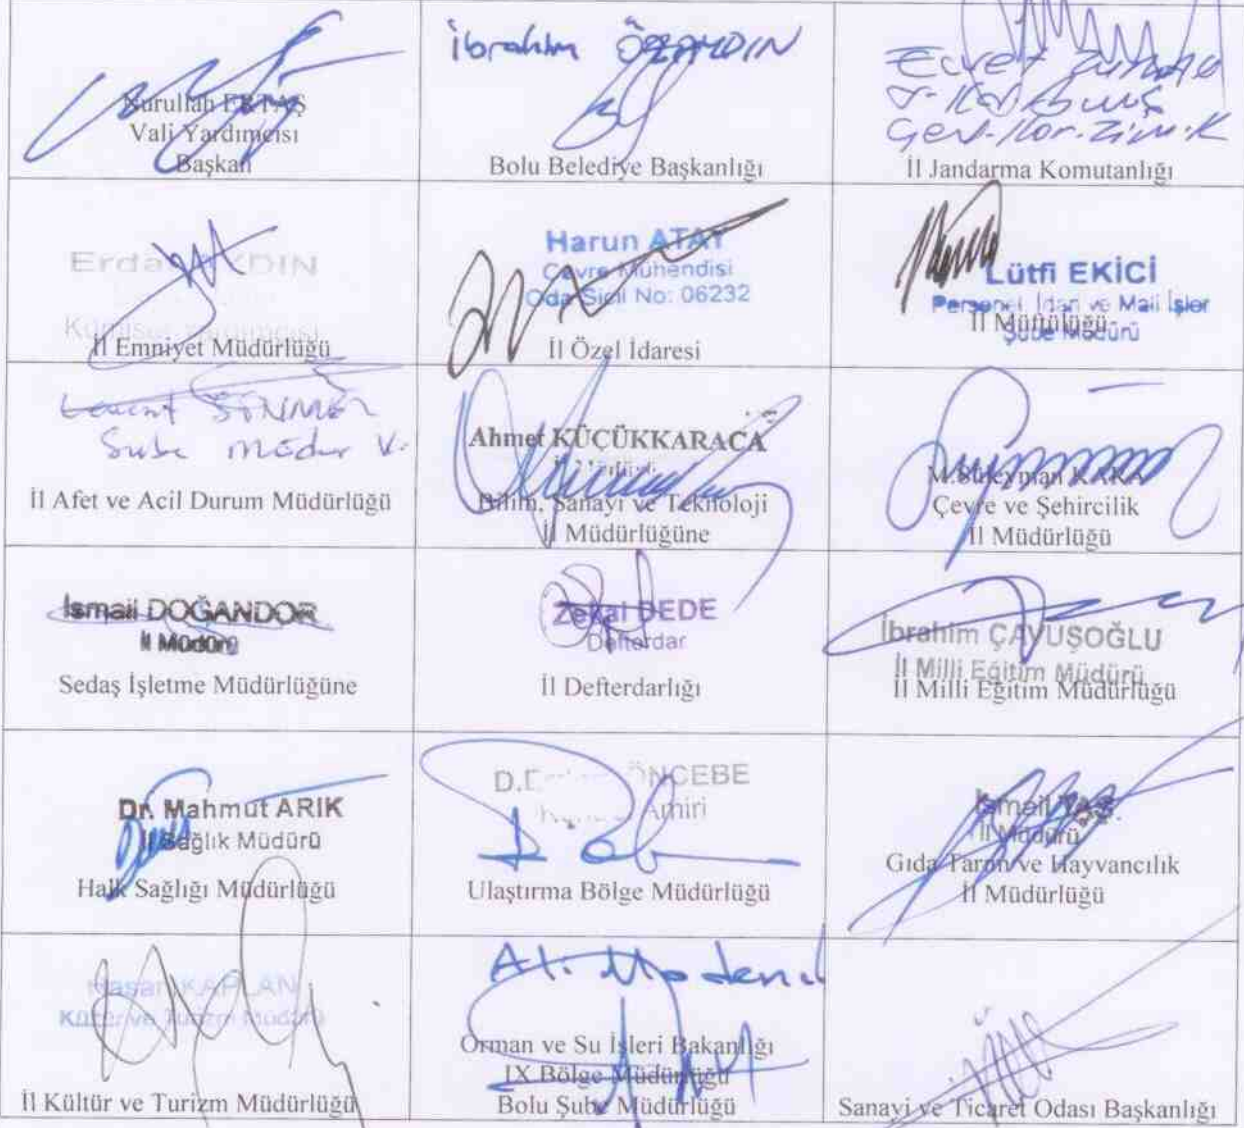 Nurullah ERTAŞ
Vali Yardımcısı
Başkan
İbrahim ÖZAYDIN
Bolu Belediye Başkanlığı
İl Jandarma Komutanlığı
AYDIN
İl Emniyet Müdürlüğü
Harun ATAY
Çevre Mühendisi
Oda Sicil No: 06232
İl Özel İdaresi
Lütfi EKİCİ
Personel, İdari ve Mali İşler
Şube Müdürü
İl Müftülüğü
Şube Müdür V.
İl Afet ve Acil Durum Müdürlüğü
Ahmet KÜÇÜKKARACA
İl Müdürü
Bilim, Sanayi ve Teknoloji
İl Müdürlüğüne
M.Süleyman KAKA
Çevre ve Şehircilik
İl Müdürlüğü
İsmail DOĞANDOR
İl Müdürü
Sedaş İşletme Müdürlüğüne
Zekai DEDE
Defterdar
İl Defterdarlığı
İbrahim ÇAVUŞOĞLU
İl Milli Eğitim Müdürü
İl Milli Eğitim Müdürlüğü
Dr. Mahmut ARIK
İl Sağlık Müdürü
Halk Sağlığı Müdürlüğü
ÖNCEBE
Amiri
Ulaştırma Bölge Müdürlüğü
İsmail
İl Müdürü
Gıda Tarım ve Hayvancılık
İl Müdürlüğü
Hasan KAPLAN
Kültür ve Turizm Müdürü
İl Kültür ve Turizm Müdürlüğü
Orman ve Su İşleri Bakanlığı
IX Bölge Müdürlüğü
Bolu Şube Müdürlüğü
Sanayi ve Ticaret Odası Başkanlığı